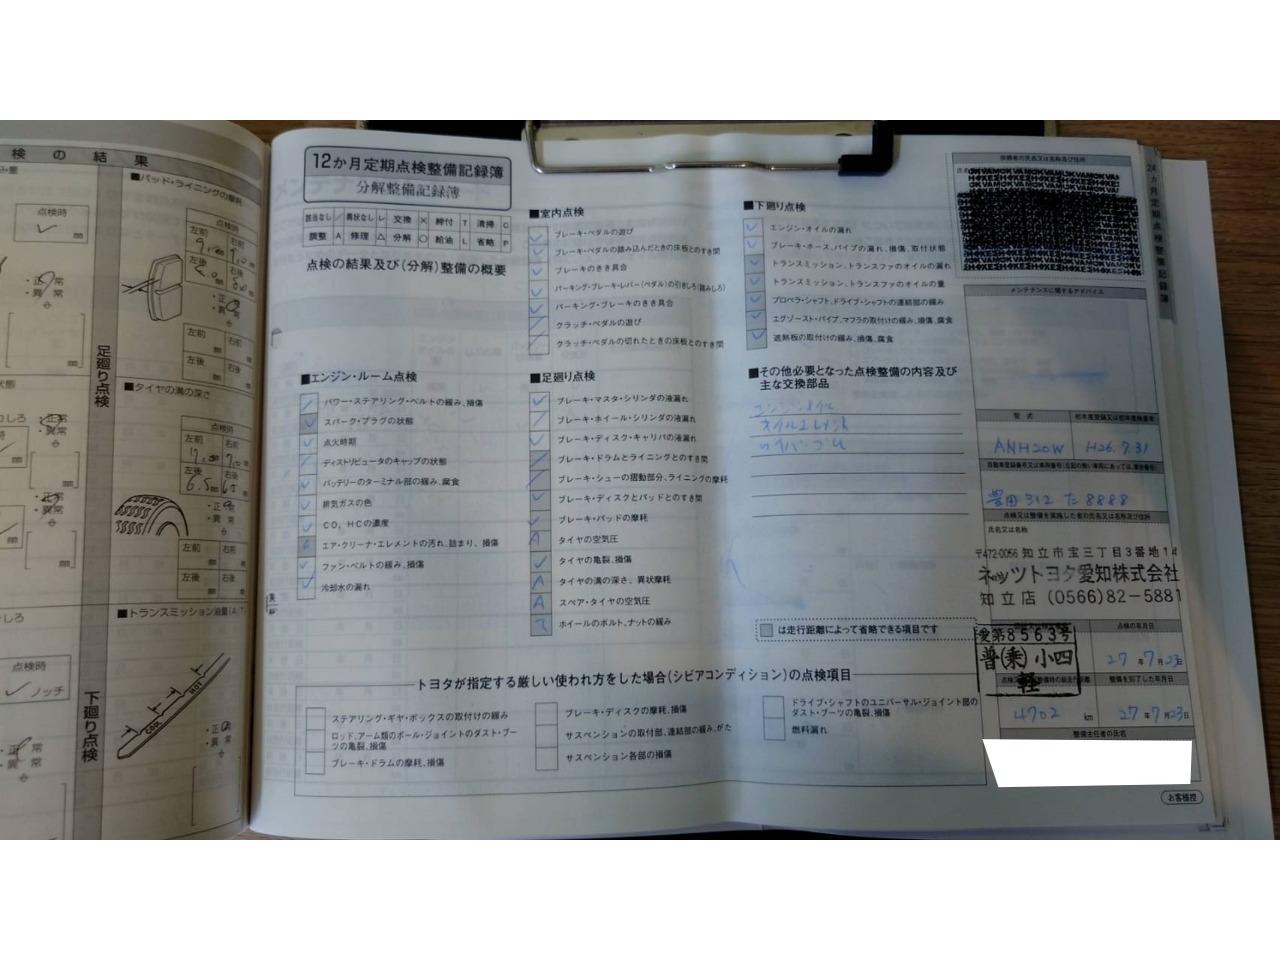 検の結果
点検時
正常
異常
mm
足廻り点検
点検時
ノッチ
下廻り点検
正常
異常
■パッド・ライニングの摩耗
点検時
左前 右前
左後 右後
左前 右前
左後 右後
■タイヤの溝の深さ
点検時
左前 右前
左後 右後
6.5
左前 右前
左後 右後
■トランスミッション油量(A/T)
HOT
COOL
12か月定期点検整備記録簿
分解整備記録簿
該当なし / 異状なし レ 交換 × 締付 T 清掃 C
調整 A 修理 △ 分解 ○ 給油 L 省略 P
点検の結果及び(分解)整備の概要
■エンジン・ルーム点検
パワー・ステアリング・ベルトの緩み、損傷
スパーク・プラグの状態
点火時期
ディストリビュータのキャップの状態
バッテリーのターミナル部の緩み、腐食
排気ガスの色
CO、HCの濃度
エア・クリーナ・エレメントの汚れ、詰まり、損傷
ファン・ベルトの緩み、損傷
冷却水の漏れ
■室内点検
ブレーキ・ペダルの遊び
ブレーキ・ペダルの踏み込んだときの床板とのすき間
ブレーキのきき具合
パーキング・ブレーキ・レバー(ペダル)の引きしろ(踏みしろ)
パーキング・ブレーキのきき具合
クラッチ・ペダルの遊び
クラッチ・ペダルの切れたときの床板とのすき間
■足廻り点検
ブレーキ・マスタ・シリンダの液漏れ
ブレーキ・ホイール・シリンダの液漏れ
ブレーキ・ディスク・キャリパの液漏れ
ブレーキ・ドラムとライニングとのすき間
ブレーキ・シューの摺動部分、ライニングの摩耗
ブレーキ・ディスクとパッドとのすき間
ブレーキ・パッドの摩耗
A タイヤの空気圧
タイヤの亀裂、損傷
A タイヤの溝の深さ、異状摩耗
A スペア・タイヤの空気圧
ホイールのボルト、ナットの緩み
■下廻り点検
エンジン・オイルの漏れ
ブレーキ・ホース、パイプの漏れ、損傷、取付状態
トランスミッション、トランスファのオイルの漏れ
トランスミッション、トランスファのオイルの量
プロペラ・シャフト、ドライブ・シャフトの連結部の緩み
エグゾースト・パイプ、マフラの取付けの緩み、損傷、腐食
遮熱板の取付けの緩み、損傷、腐食
■その他必要となった点検整備の内容及び
主な交換部品
エンジンオイル
オイルエレメント
ワイパーゴム
は走行距離によって省略できる項目です
トヨタが指定する厳しい使われ方をした場合(シビアコンディション)の点検項目
ステアリング・ギヤ・ボックスの取付けの緩み
ロッド、アーム類のボール・ジョイントのダスト・ブーツの亀裂、損傷
ブレーキ・ドラムの摩耗、損傷
ブレーキ・ディスクの摩耗、損傷
サスペンションの取付部、連結部の緩み、がた
サスペンション各部の損傷
ドライブ・シャフトのユニバーサル・ジョイント部の
ダスト・ブーツの亀裂、損傷
燃料漏れ
依頼者の氏名又は名称及び住所
メンテナンスに関するアドバイス
型式 初年度登録又は初年度検査年
ANH20W H26.7.31
豊田 312 た 8888
点検又は整備を実施した者の氏名又は名称及び住所
氏名又は名称
〒472-0056 知立市宝三丁目3番地14
ネッツトヨタ愛知株式会社
知立店 (0566)82-5881
愛第8563号
普(乗)小四
軽
点検の年月日
27年7月23日
整備を完了した年月日
4702 km 27年7月23日
整備主任者の氏名
お客様控
24カ月定期点検整備記録簿